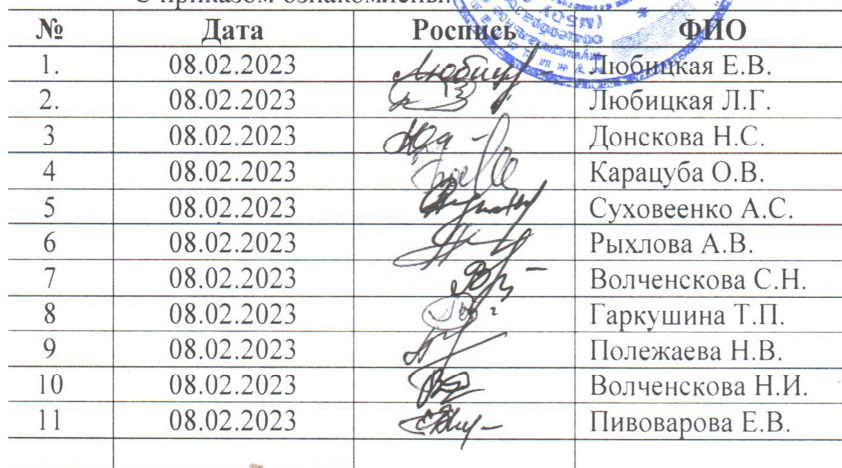 С приказом ознакомлены:
№ Дата Роспись ФИО
1. 08.02.2023 Любицкая Е.В.
2. 08.02.2023 Любицкая Л.Г.
3 08.02.2023 Донскова Н.С.
4 08.02.2023 Карацуба О.В.
5 08.02.2023 Суховеенко А.С.
6 08.02.2023 Рыхлова А.В.
7 08.02.2023 Волченскова С.Н.
8 08.02.2023 Гаркушина Т.П.
9 08.02.2023 Полежаева Н.В.
10 08.02.2023 Волченскова Н.И.
11 08.02.2023 Пивоварова Е.В.